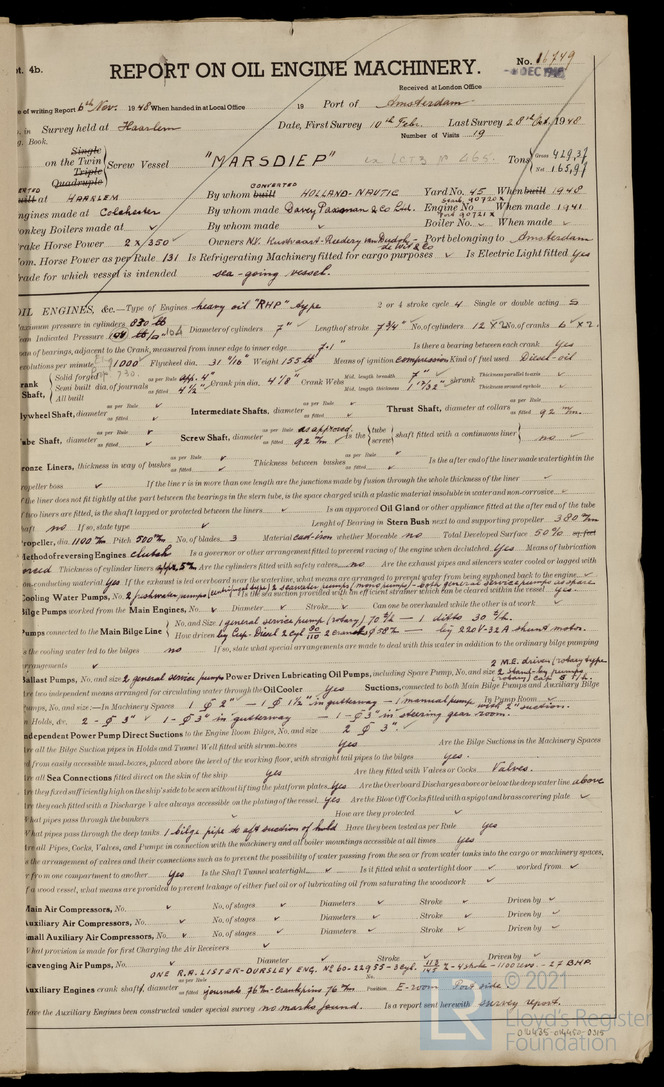 pt. 4b.
REPORT ON OIL ENGINE MACHINERY.
No. 16749
Received at London Office
DEC 1948
e of writing Report 6th Nov. 1948 When handed in at Local Office 19 Port of Amsterdam
Survey held at Haarlem Date, First Survey 10th Feb. Last Survey 28th Oct. 1948
g. Book. Number of Visits 19
on the Single Twin Triple Quadruple Screw Vessel "MARSDIEP" ex LCT3 No 465. Tons Gross 429,37 Net 165,97
built at HAARLEM By whom built CONVERTED HOLLAND-NAUTIC Yard No. 45 When built 1948
ngines made at Colchester By whom made Davey Paxman & Co Ltd. Engine No. When made 1941
onkey Boilers made at By whom made Boiler No. When made
rake Horse Power 2 x 350 Owners N.V. Port belonging to Amsterdam
om. Horse Power as per Rule 131 Is Refrigerating Machinery fitted for cargo purposes Is Electric Light fitted yes
rade for which vessel is intended sea-going vessel.
OIL ENGINES, &c.—Type of Engines heavy oil "RHP" type 2 or 4 stroke cycle 4 Single or double acting S
aximum pressure in cylinders 830 lb Diameter of cylinders 7" Length of stroke 7 3/4" No. of cylinders 12 x 2 No. of cranks 6 x 2.
ean Indicated Pressure
an of bearings, adjacent to the Crank, measured from inner edge to inner edge 7.1" Is there a bearing between each crank Yes
evolutions per minute 1000 Flywheel dia. 31 9/16" Weight 155 lb Means of ignition compression Kind of fuel used Diesel-oil
rank Shaft, Solid forged Semi built All built dia. of journals as per Rule app. 4" as fitted 4 1/2" Crank pin dia. 4 1/8" Crank Webs Mid. length breadth 7" Mid. length thickness 1 17/32" shrunk Thickness parallel to axis Thickness around eyehole
lywheel Shaft, diameter as per Rule as fitted Intermediate Shafts, diameter as per Rule as fitted Thrust Shaft, diameter at collars as per Rule as fitted 92 m/m.
ube Shaft, diameter as per Rule as fitted Screw Shaft, diameter as per Rule as approved. as fitted 92 m/m Is the tube screw shaft fitted with a continuous liner no
ronze Liners, thickness in way of bushes as per Rule as fitted Thickness between bushes as per Rule as fitted Is the after end of the liner made watertight in the
ropeller boss If the liner is in more than one length are the junctions made by fusion through the whole thickness of the liner
f the liner does not fit tightly at the part between the bearings in the stern tube, is the space charged with a plastic material insoluble in water and non-corrosive
f two liners are fitted, is the shaft lapped or protected between the liners Is an approved Oil Gland or other appliance fitted at the after end of the tube
haft no If so, state type Length of Bearing in Stern Bush next to and supporting propeller 380 m/m
ropeller, dia. 1100 m/m Pitch 700 m/m No. of blades 3 Material cast-iron whether Moveable no Total Developed Surface 50% sq. feet
Method of reversing Engines clutch Is a governor or other arrangement fitted to prevent racing of the engine when declutched Yes Means of lubrication
orced Thickness of cylinder liners Are the cylinders fitted with safety valves no Are the exhaust pipes and silencers water cooled or lagged with
on-conducting material yes If the exhaust is led overboard near the waterline, what means are arranged to prevent water from being syphoned back to the engine
Cooling Water Pumps, No. Is the sea suction provided with an efficient strainer which can be cleared within the vessel yes.
Bilge Pumps worked from the Main Engines, No. Diameter Stroke Can one be overhauled while the other is at work
umps connected to the Main Bilge Line No. and Size 1 general service pump (rotary) 70 t/h — 1 ditto 30 t/h.
How driven by 220V-32A shunt motor.
s the cooling water led to the bilges no If so, state what special arrangements are made to deal with this water in addition to the ordinary bilge pumping
rrangements 2 M.E. driven (rotary type
Ballast Pumps, No. and size 2 general service pumps Power Driven Lubricating Oil Pumps, including Spare Pump, No. and size 2 stand-by pumps (rotary)
re two independent means arranged for circulating water through the Oil Cooler Yes Suctions, connected to both Main Bilge Pumps and Auxiliary Bilge
umps, No. and size:—In Machinery Spaces 1 ϕ 2" — 1 ϕ 1½" in gutterway — 1 manual pump with 2" suction. In Pump Room
n Holds, &c. 2 - ϕ 3" 1 - ϕ 3" in gutterway — 1 - ϕ 3" in steering gear room.
ndependent Power Pump Direct Suctions to the Engine Room Bilges, No. and size 2 ϕ 3"
re all the Bilge Suction pipes in Holds and Tunnel Well fitted with strum-boxes yes Are the Bilge Suctions in the Machinery Spaces
d from easily accessible mud-boxes, placed above the level of the working floor, with straight tail pipes to the bilges yes.
re all Sea Connections fitted direct on the skin of the ship yes Are they fitted with Valves or Cocks Valves.
re they fixed sufficiently high on the ship's side to be seen without lifting the platform plates Yes Are the Overboard Discharges above or below the deep water line above
re they each fitted with a Discharge Valve always accessible on the plating of the vessel Yes Are the Blow Off Cocks fitted with a spigot and brass covering plate
hat pipes pass through the bunkers How are they protected
hat pipes pass through the deep tanks 1 bilge pipe to aft suction of hold Have they been tested as per Rule yes
re all Pipes, Cocks, Valves, and Pumps in connection with the machinery and all boiler mountings accessible at all times yes
s the arrangement of valves and their connections such as to prevent the possibility of water passing from the sea or from water tanks into the cargo or machinery spaces,
r from one compartment to another Yes Is the Shaft Tunnel watertight Is it fitted with a watertight door worked from
f a wood vessel, what means are provided to prevent leakage of either fuel oil or of lubricating oil from saturating the woodwork
Main Air Compressors, No. No. of stages Diameters Stroke Driven by
Auxiliary Air Compressors, No. No. of stages Diameters Stroke Driven by
mall Auxiliary Air Compressors, No. No. of stages Diameters Stroke Driven by
What provision is made for first Charging the Air Receivers
cavenging Air Pumps, No. Diameter Stroke Driven by
ONE R.A. LISTER-DURSLEY ENG. No 60-22955-3 cyl. 4 stroke - 1100 revs. - 27 BHP.
Auxiliary Engines crank shafts, diameter as per Rule as fitted journals 76 m/m - Crankpins 76 m/m No. Position E-room Port side
Have the Auxiliary Engines been constructed under special survey no marks found. Is a report sent herewith survey report.
© 2021
Lloyd's Register
Foundation
014435-014450-0315